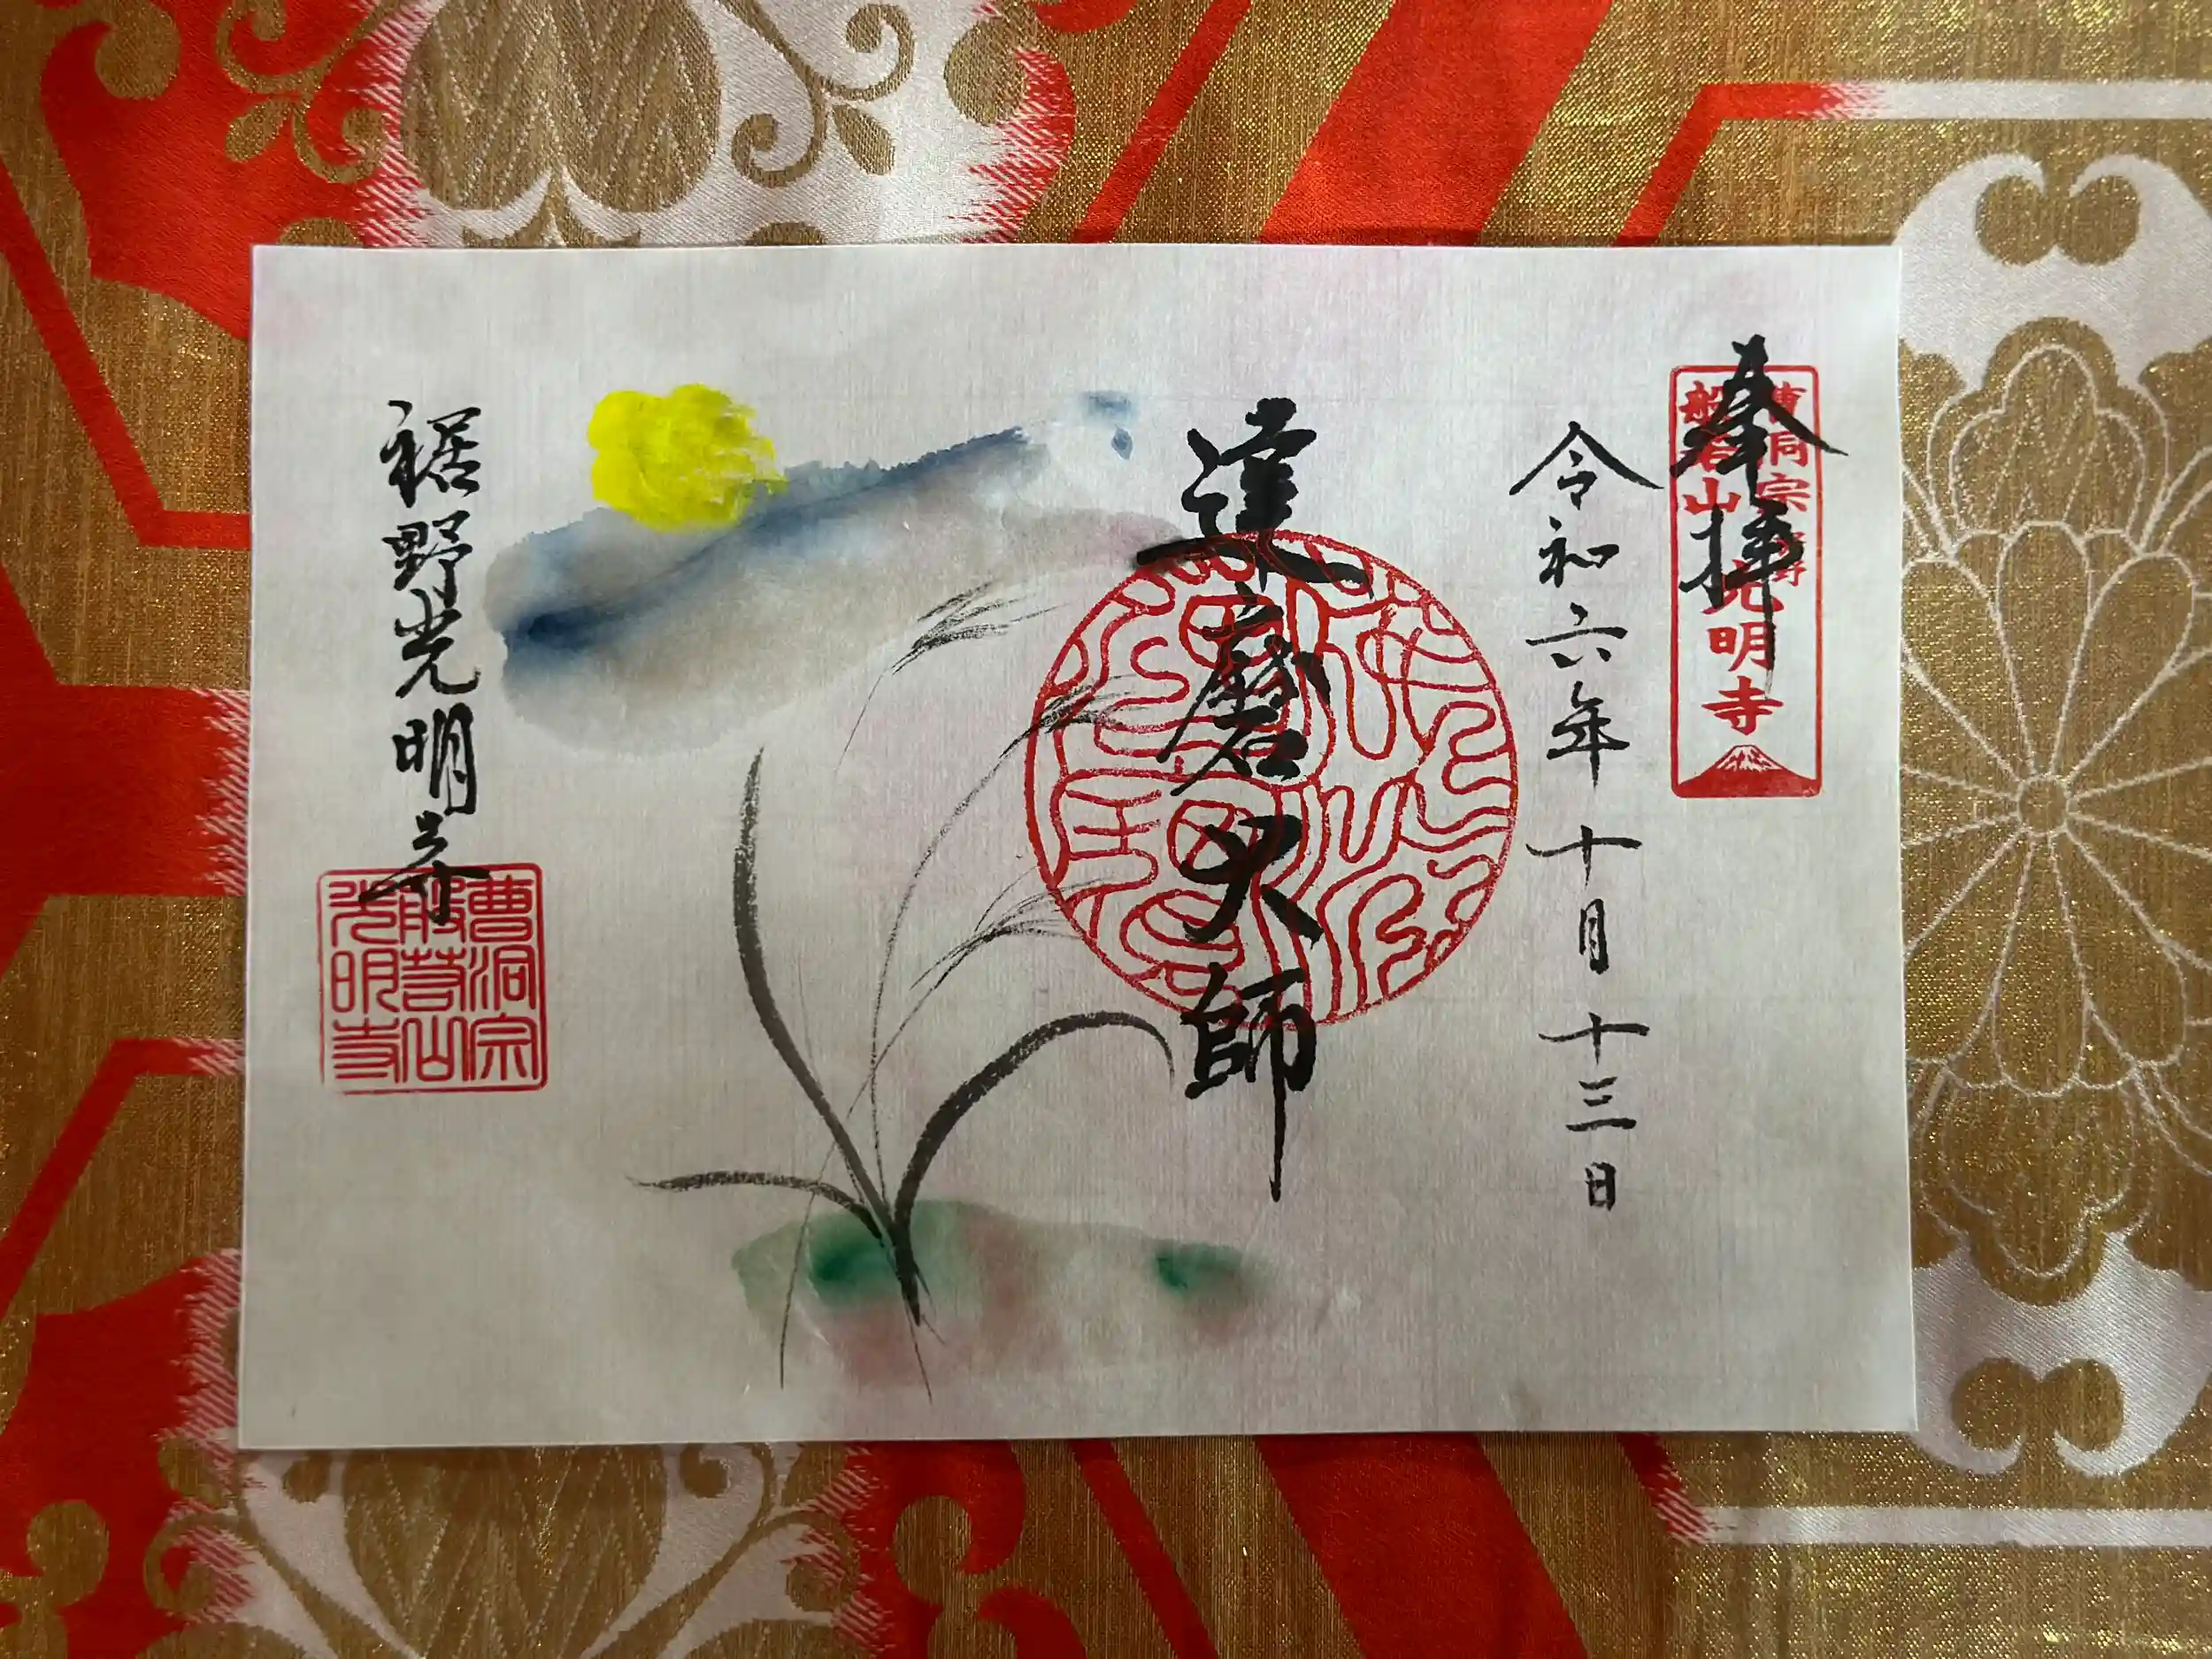 奉拝
曹洞宗
般若山
光明寺
令和六年十月十三日
達磨大師
裾野光明寺
曹洞宗
般若山
光明寺